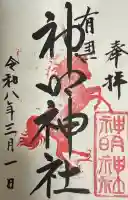 奉拝
有里
神明神社
令和八年三月一日
神明神社